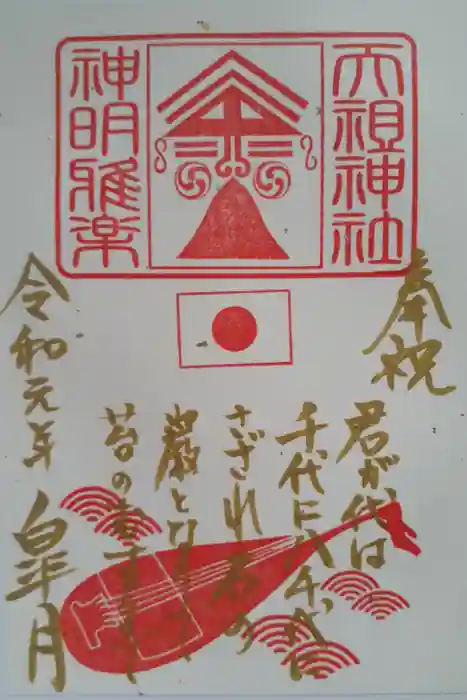 六祖神社
神明雅楽
奉祝
君が代は
千代に八千代に
さざれ石の
巌となりて
苔の
令和元年
皐月